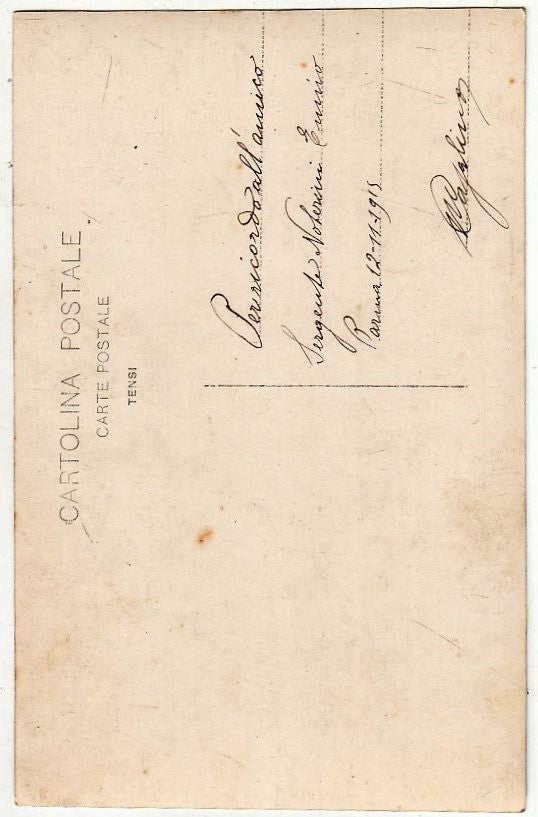 CARTOLINA POSTALE
CARTE POSTALE
TENSI
Per ricordo all'amico
Sergente Noterini Ennio
Parma 12-11-915